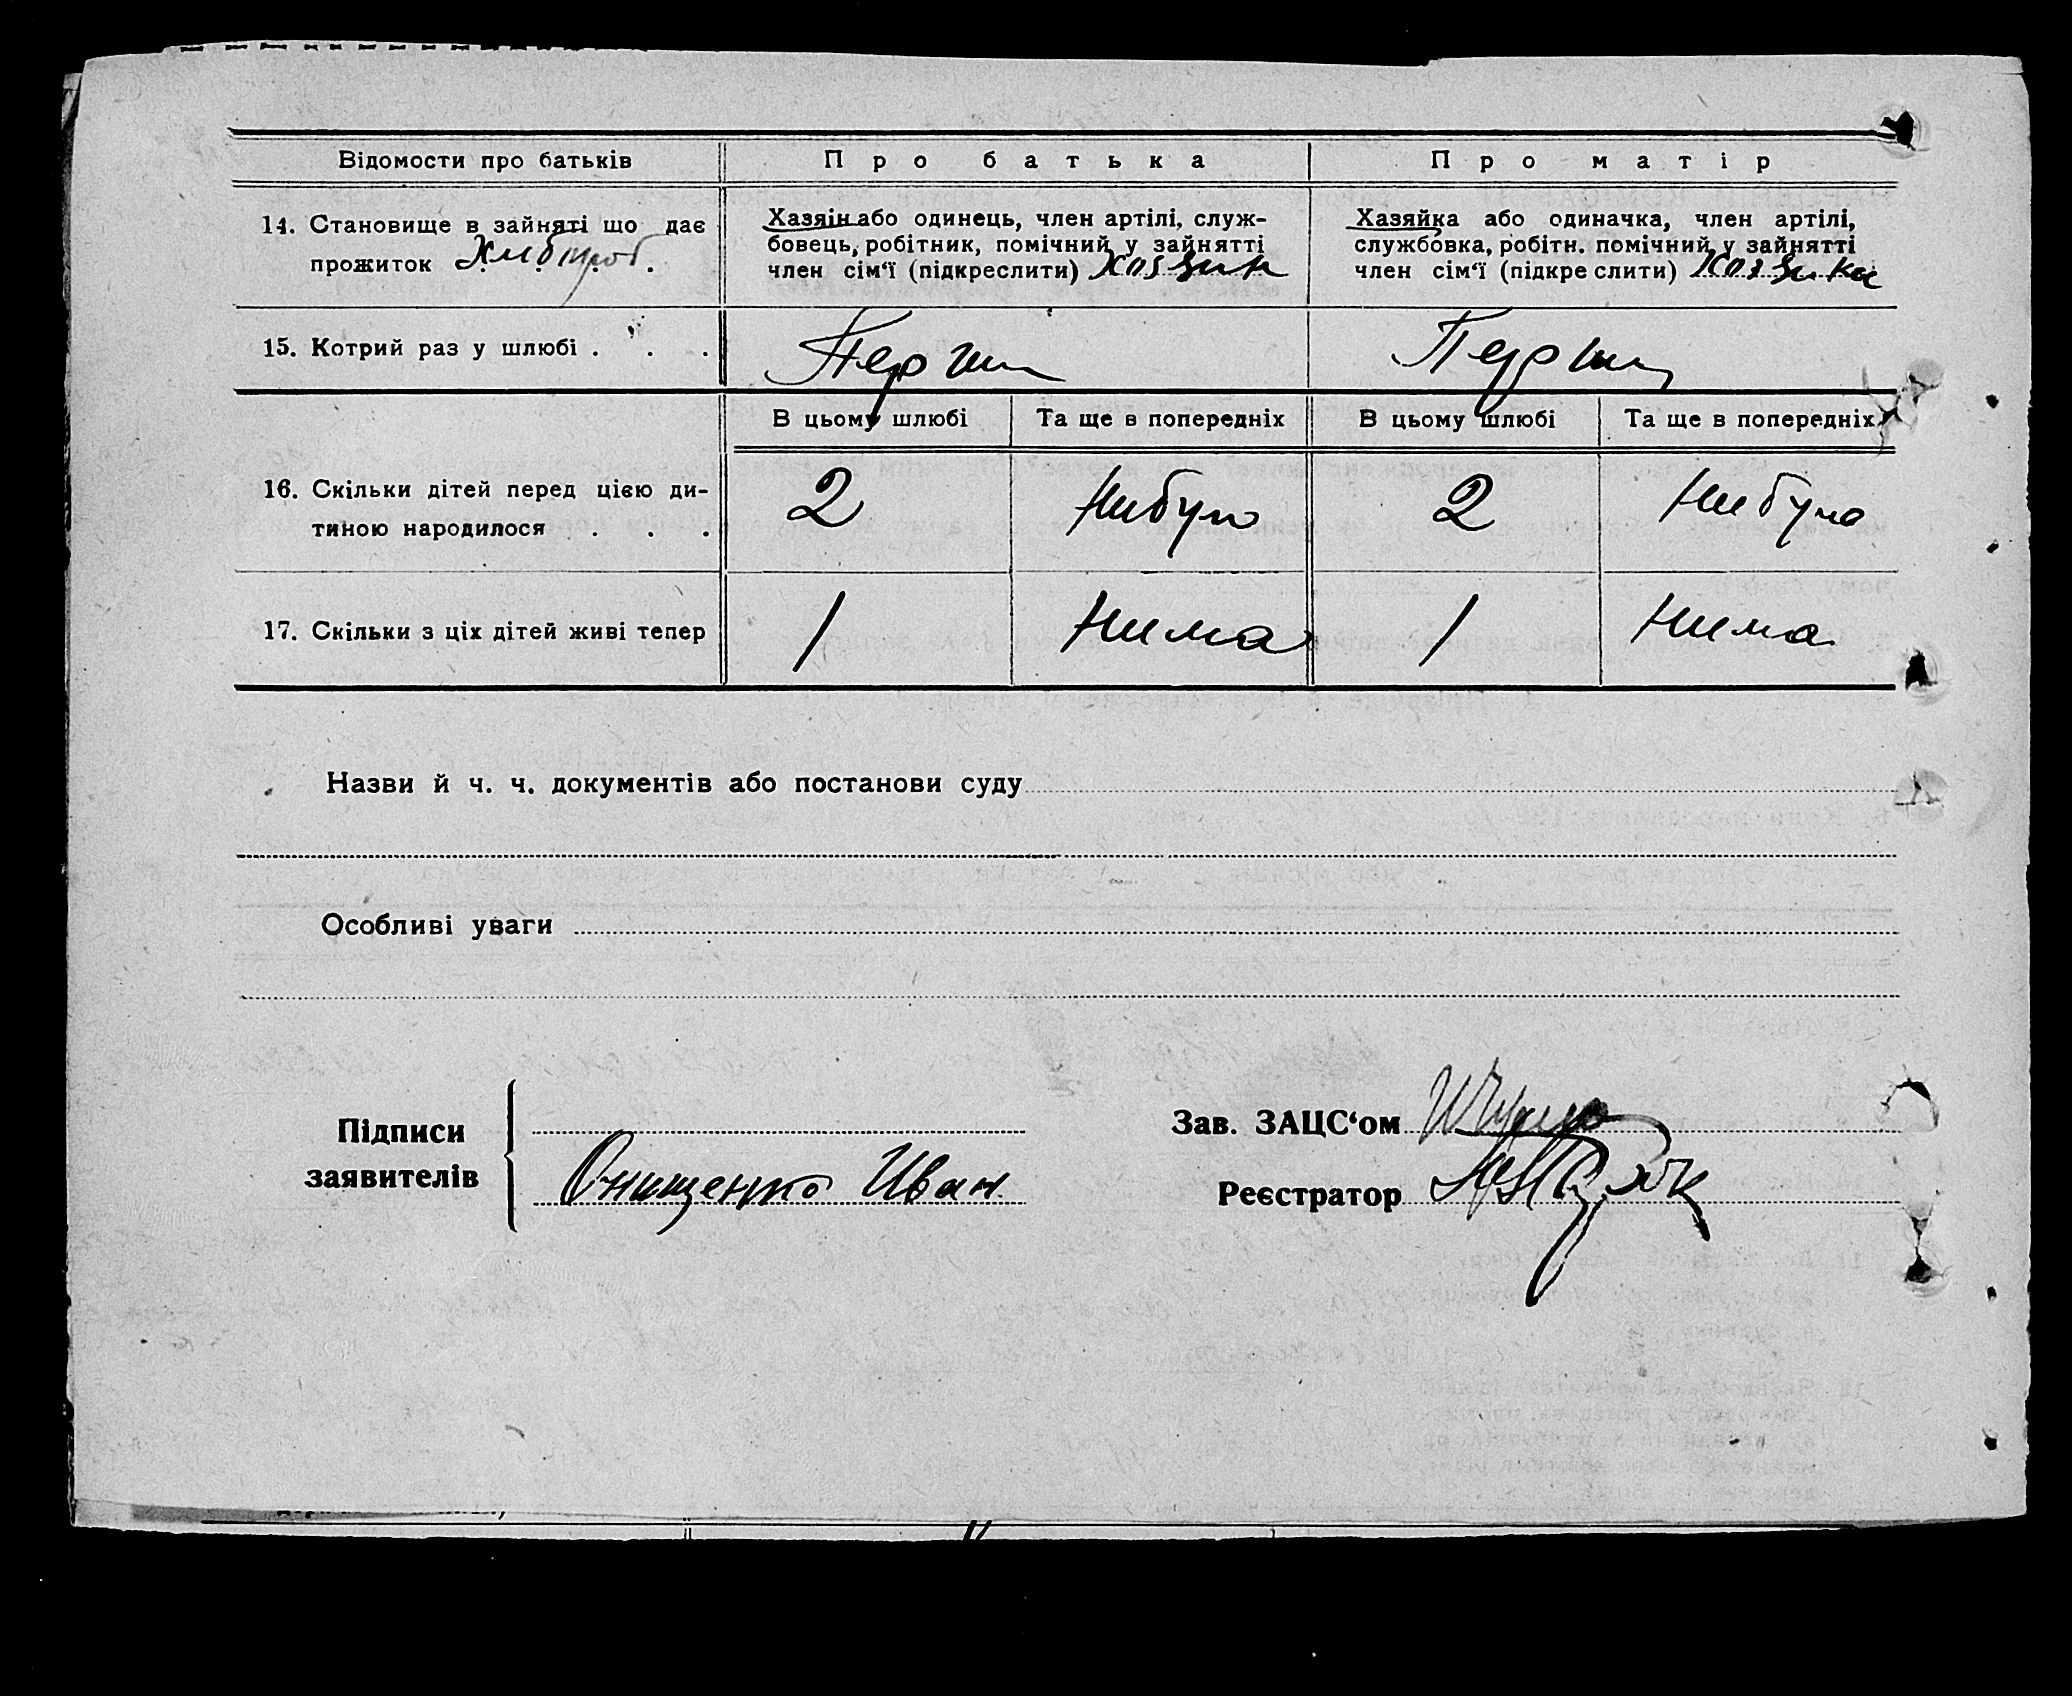 Відомости про батьків
Про батька
Про матір
14. Становище в зайняті що дає
прожиток
Хазяїн або одинець, член артілі, служ-
бовець, робітник, помічний у зайнятті
член сім‘ї (підкреслити) Хозяин
Хазяйка або одиначка, член артілі,
службовка, робітн. помічний у зайнятті
член сім‘ї (підкре слити) Хозяика
15. Котрий раз у шлюбі . . .
Перши
Перши
В цьому шлюбі
Та ще в попередніх
В цьому шлюбі
Та ще в попередніх
16. Скільки дітей перед цією ди-
тиною народилося . . .
2
Нибуло
2
Нибуло
17. Скільки з ціх дітей живі тепер
1
Нима
1
Нима
Назви й ч. ч. документів або постанови суду
Особливі уваги
Підписи
заявителів
Онищенко Иван
Зав. ЗАЦС‘ом
Реєстратор